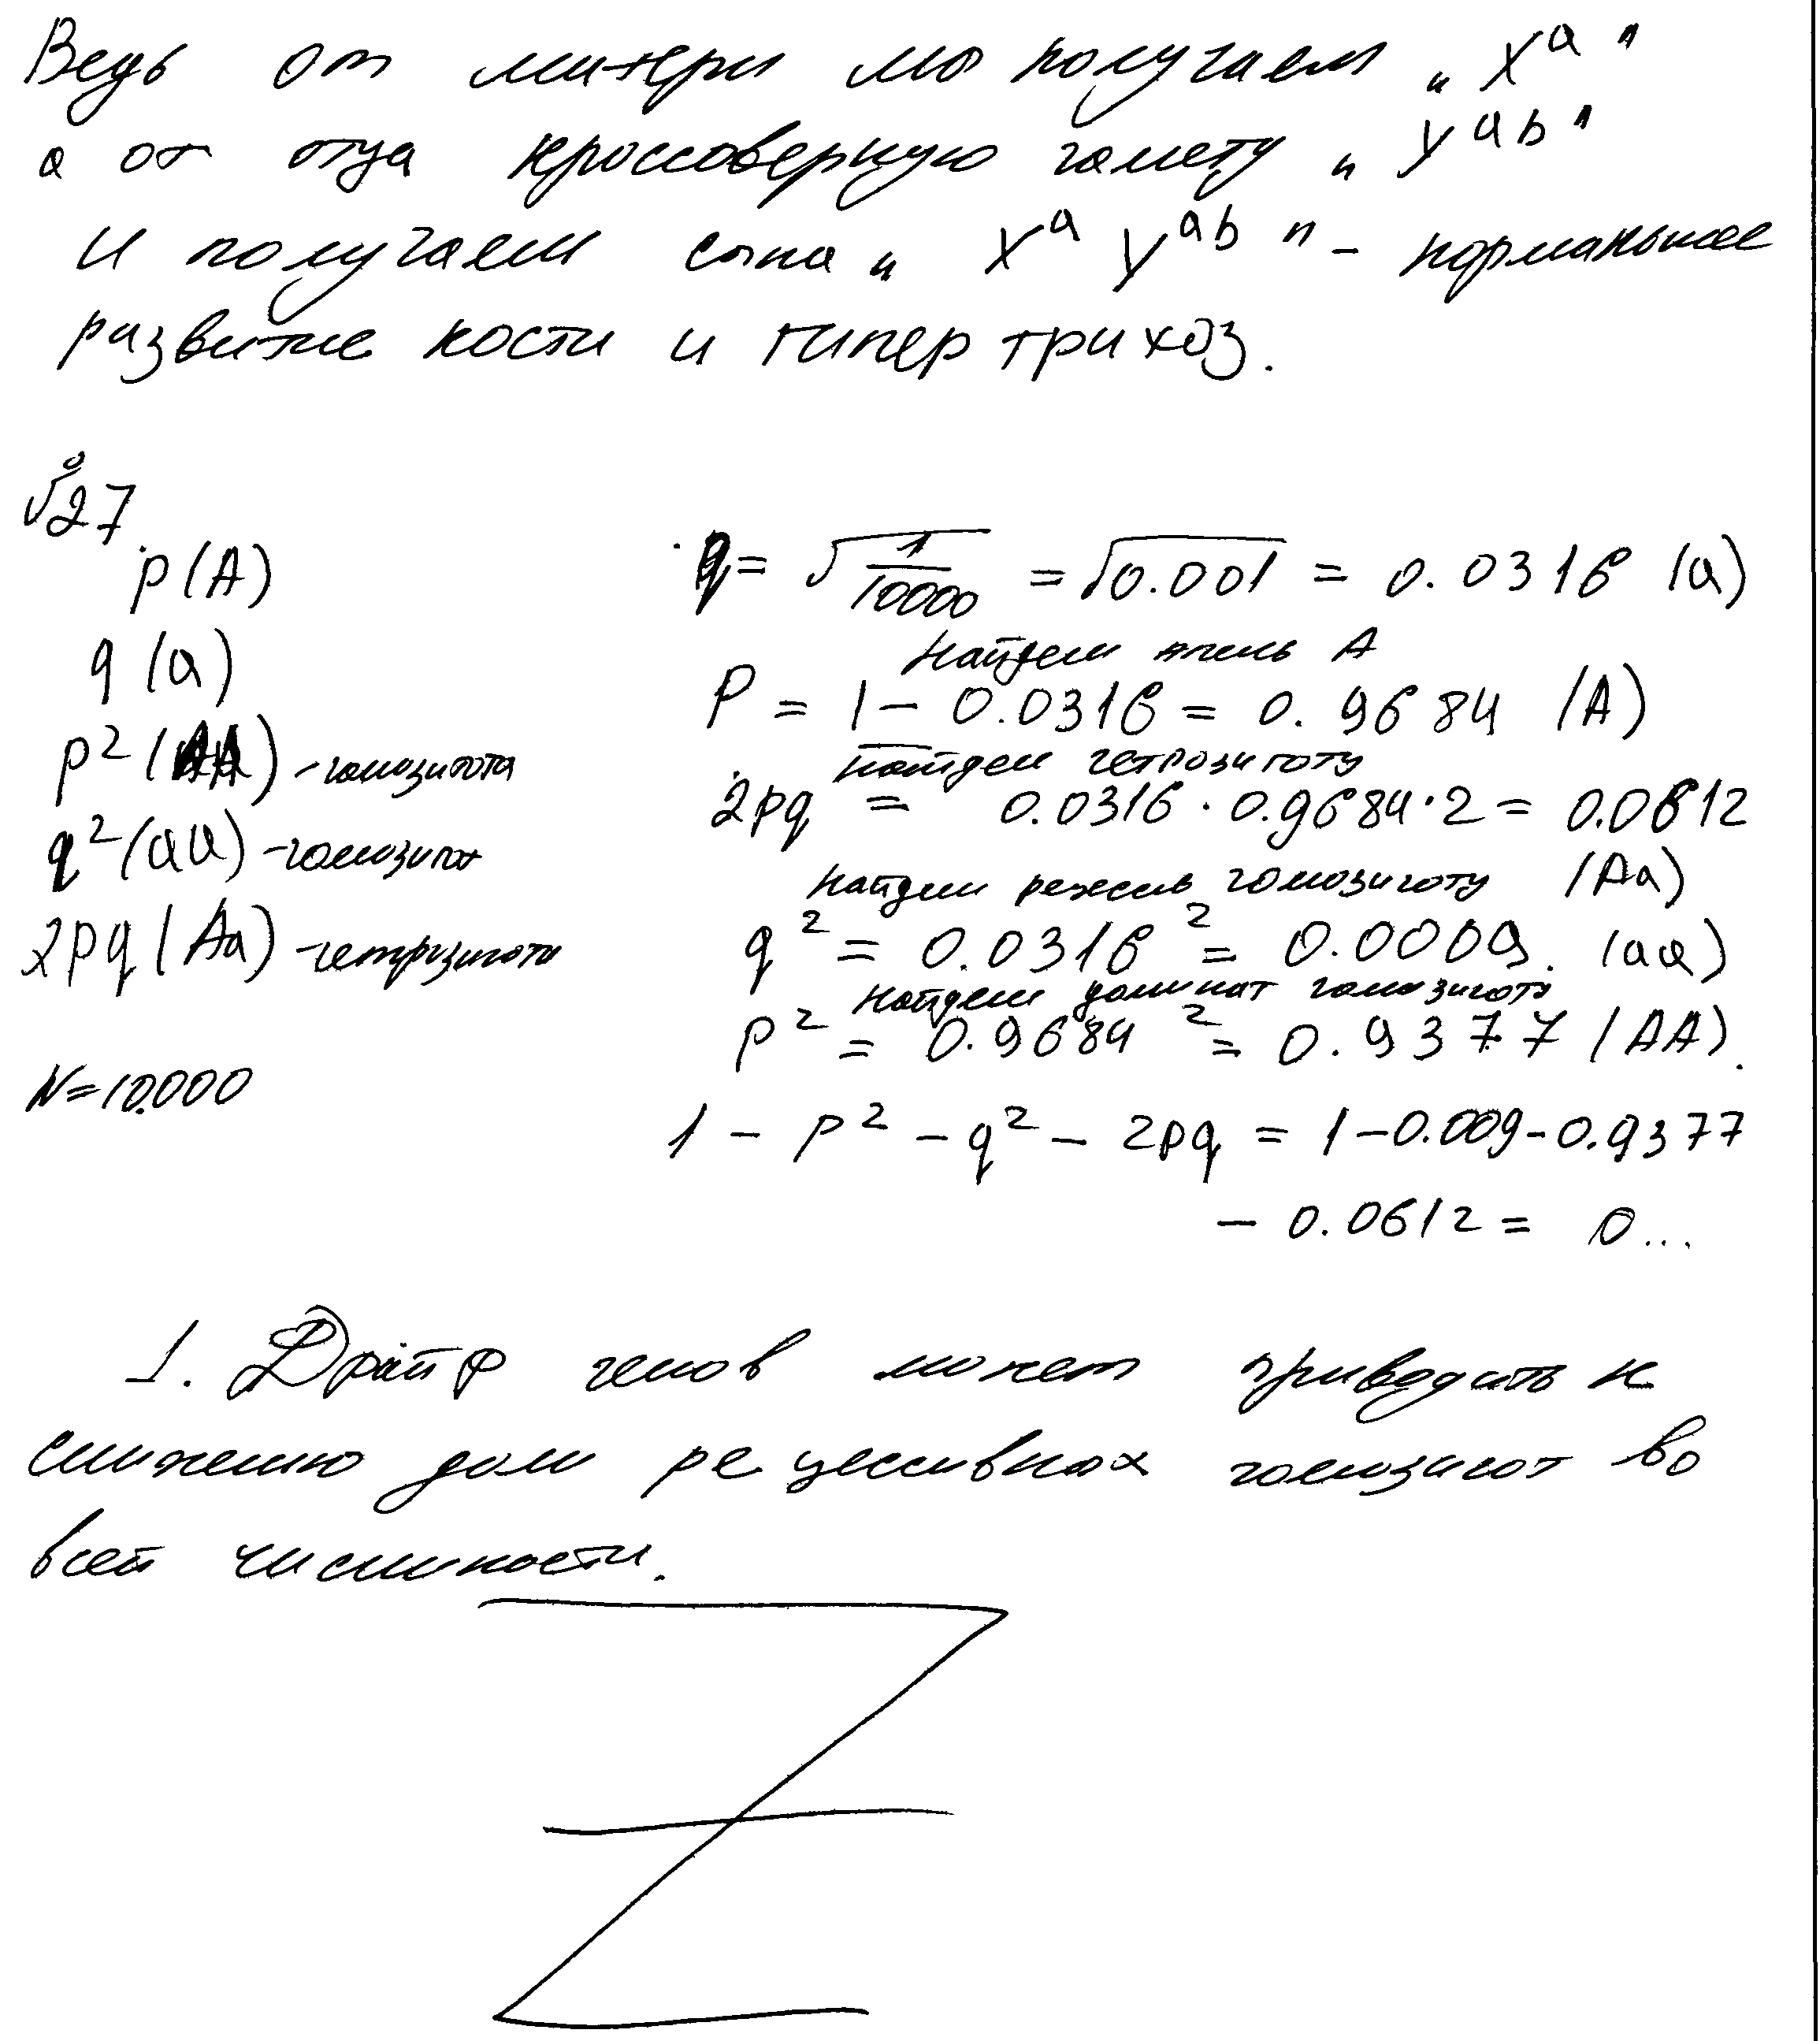 Ведь от матери мы получаем „ X^a "
а от отца кроссоверную гамету „ Y^ab "
И получаем сына „ X^a Y^ab " - нормальное
развитие кости и гипертрихоз.
№27
p(A)
q (a)
p² (AA) - гомозигота
q² (aa) - гомозигот
2pq (Aa) - гетрозигота
N=10.000
q = √1/10000 = √0.001 = 0.0316 (a)
Найдем аллель A
P = 1 - 0.0316 = 0.9684 (A)
Найдем гетрозиготу
2pq = 0.0316 · 0.9684 · 2 = 0.0612
Найдем рецесив гомозиготу (Aa)
q² = 0.0316² = 0.0009. (aa)
Найдем доминат гомозиготу
p² = 0.9684² = 0.9377 (AA).
1 - p² - q² - 2pq = 1 - 0.009 - 0.9377
- 0.0612 = 0...
1. Дрейф генов может приводить к
снижению доли рецессивных гомозигот во
всей числиности.